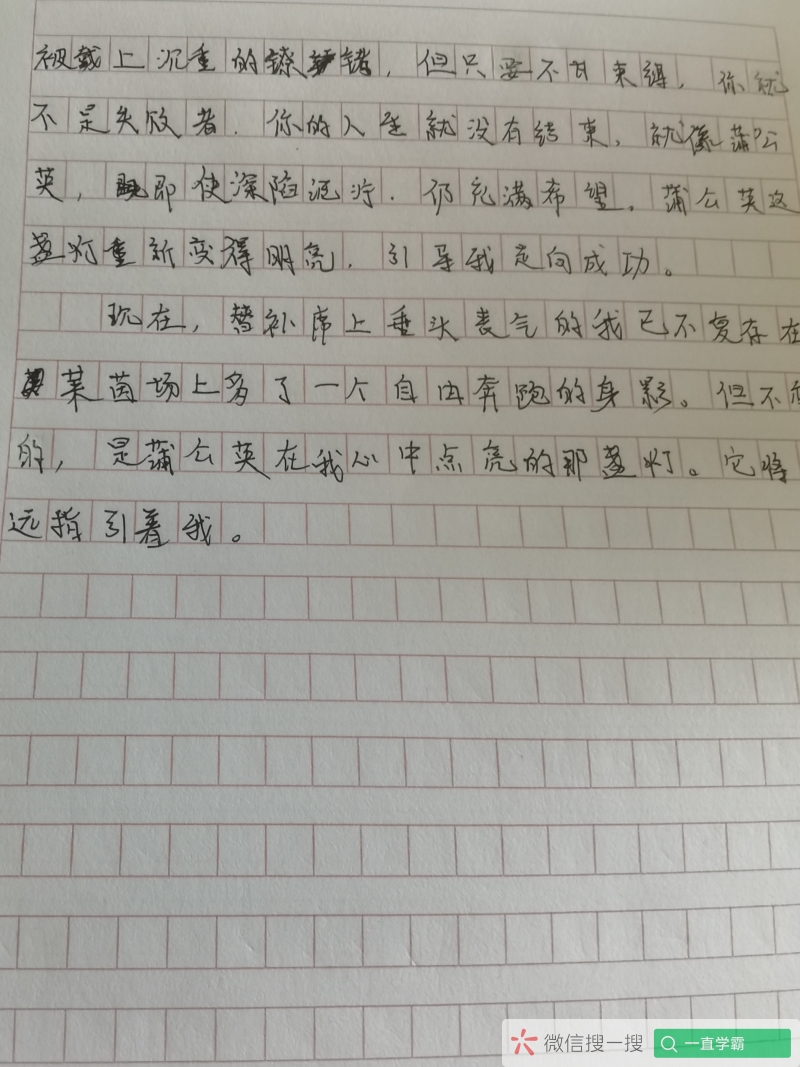 被戴上沉重的镣锗，但只要不甘束缚，你就
不是失败者。你的人生就没有结束，就像蒲公
英，即使深陷泥泞，仍充满希望。蒲公英这
盏灯重新变得明亮，引导我走向成功。
现在，替补席上垂头丧气的我已不复存在
莱茵场上多了一个自由奔跑的身影。但不
的，是蒲公英在我心中点亮的那盏灯。它将
远指引着我。
微信搜一搜 一直学霸